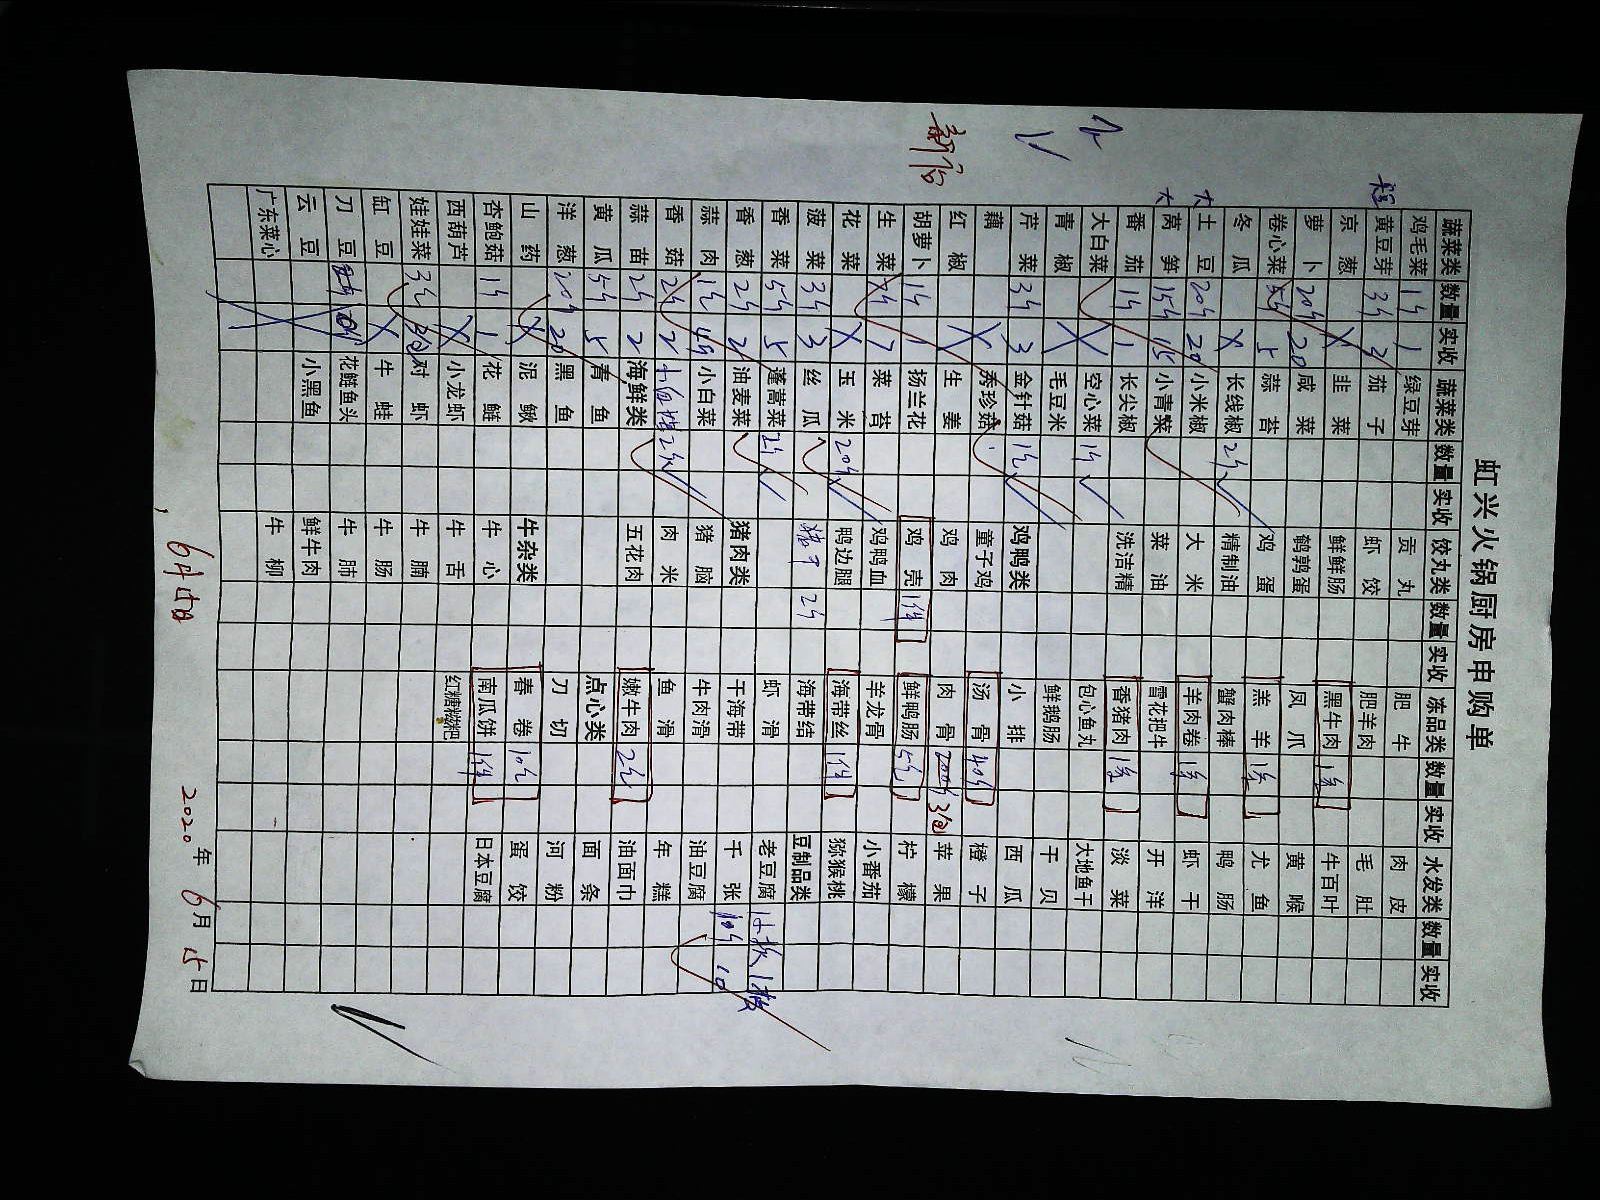 虹兴火锅厨房申购单
蔬菜类 数量 实收 蔬菜类 数量 实收 饺丸类 数量 实收 冻品类 数量 实收 水发类 数量 实收
鸡毛菜 1斤 1 绿豆芽 贡丸 肥牛 肉皮
黄豆芽 3斤 3 茄子 虾饺 肥羊肉 毛肚
京葱 X 韭菜 鲜鲜肠 黑牛肉 1条 牛百叶
萝卜 20斤 20 咸菜 鹌鹑蛋 凤爪 黄喉
卷心菜 5斤 5 蒜苔 鸡蛋 羔羊 1条 尤鱼
冬瓜 X 长线椒 2斤 精制油 蟹肉棒 鸭肠
大土豆 20斤 20 小米椒 大米 羊肉卷 1条 虾干
大莴笋 15斤 15 小青菜 菜油 雪花把牛 开洋
番茄 1斤 1 长尖椒 洗洁精 香猪肉 1条 淡菜
大白菜 X 空心菜 1斤 包心鱼丸 大地鱼干
青椒 X 毛豆米 鲜鹅肠 干贝
芹菜 3斤 3 金针菇 1包 鸡鸭类 小排 西瓜
藕 秀珍菇 童子鸡 汤骨 40斤 橙子
红椒 X 生姜 鸡肉 肉骨 200斤 3包 苹果
胡萝卜 1斤 1 扬兰花 鸡壳 1件 鲜鸭肠 5包 柠檬
生菜 7斤 7 菜苔 鸡鸭血 羊龙骨 小番茄
花菜 X 玉米 20斤 鸭边腿 海带丝 1件 猕猴桃
菠菜 3斤 3 丝瓜 猪干 2斤 海带结 豆制品类
香菜 5斤 5 蓬蒿菜 2斤 虾滑 老豆腐 1板
香葱 2斤 2 油麦菜 猪肉类 干海带 千张 10斤 10
蒜肉 小白菜 猪脑 牛肉滑 油豆腐
香菇 2斤 2 2包 肉米 鱼滑 年糕
蒜苗 2斤 2 海鲜类 五花肉 嫩牛肉 2包 油面巾
黄瓜 5斤 5 青鱼 点心类 面条
洋葱 20斤 20 黑鱼 刀切 河粉
山药 X 泥鳅 牛杂类 春卷 10包 蛋饺
杏鲍菇 1斤 1 花鲢 牛心 南瓜饼 1件 日本豆腐
西葫芦 X 小龙虾 牛舌 红糖糍粑
娃娃菜 3包 3包 对虾 牛腩
缸豆 X 牛蛙 牛肠
刀豆 花鲢鱼头 牛肺
云豆 小黑鱼 鲜牛肉
广东菜心 牛柳
6月15日
2020年6月15日